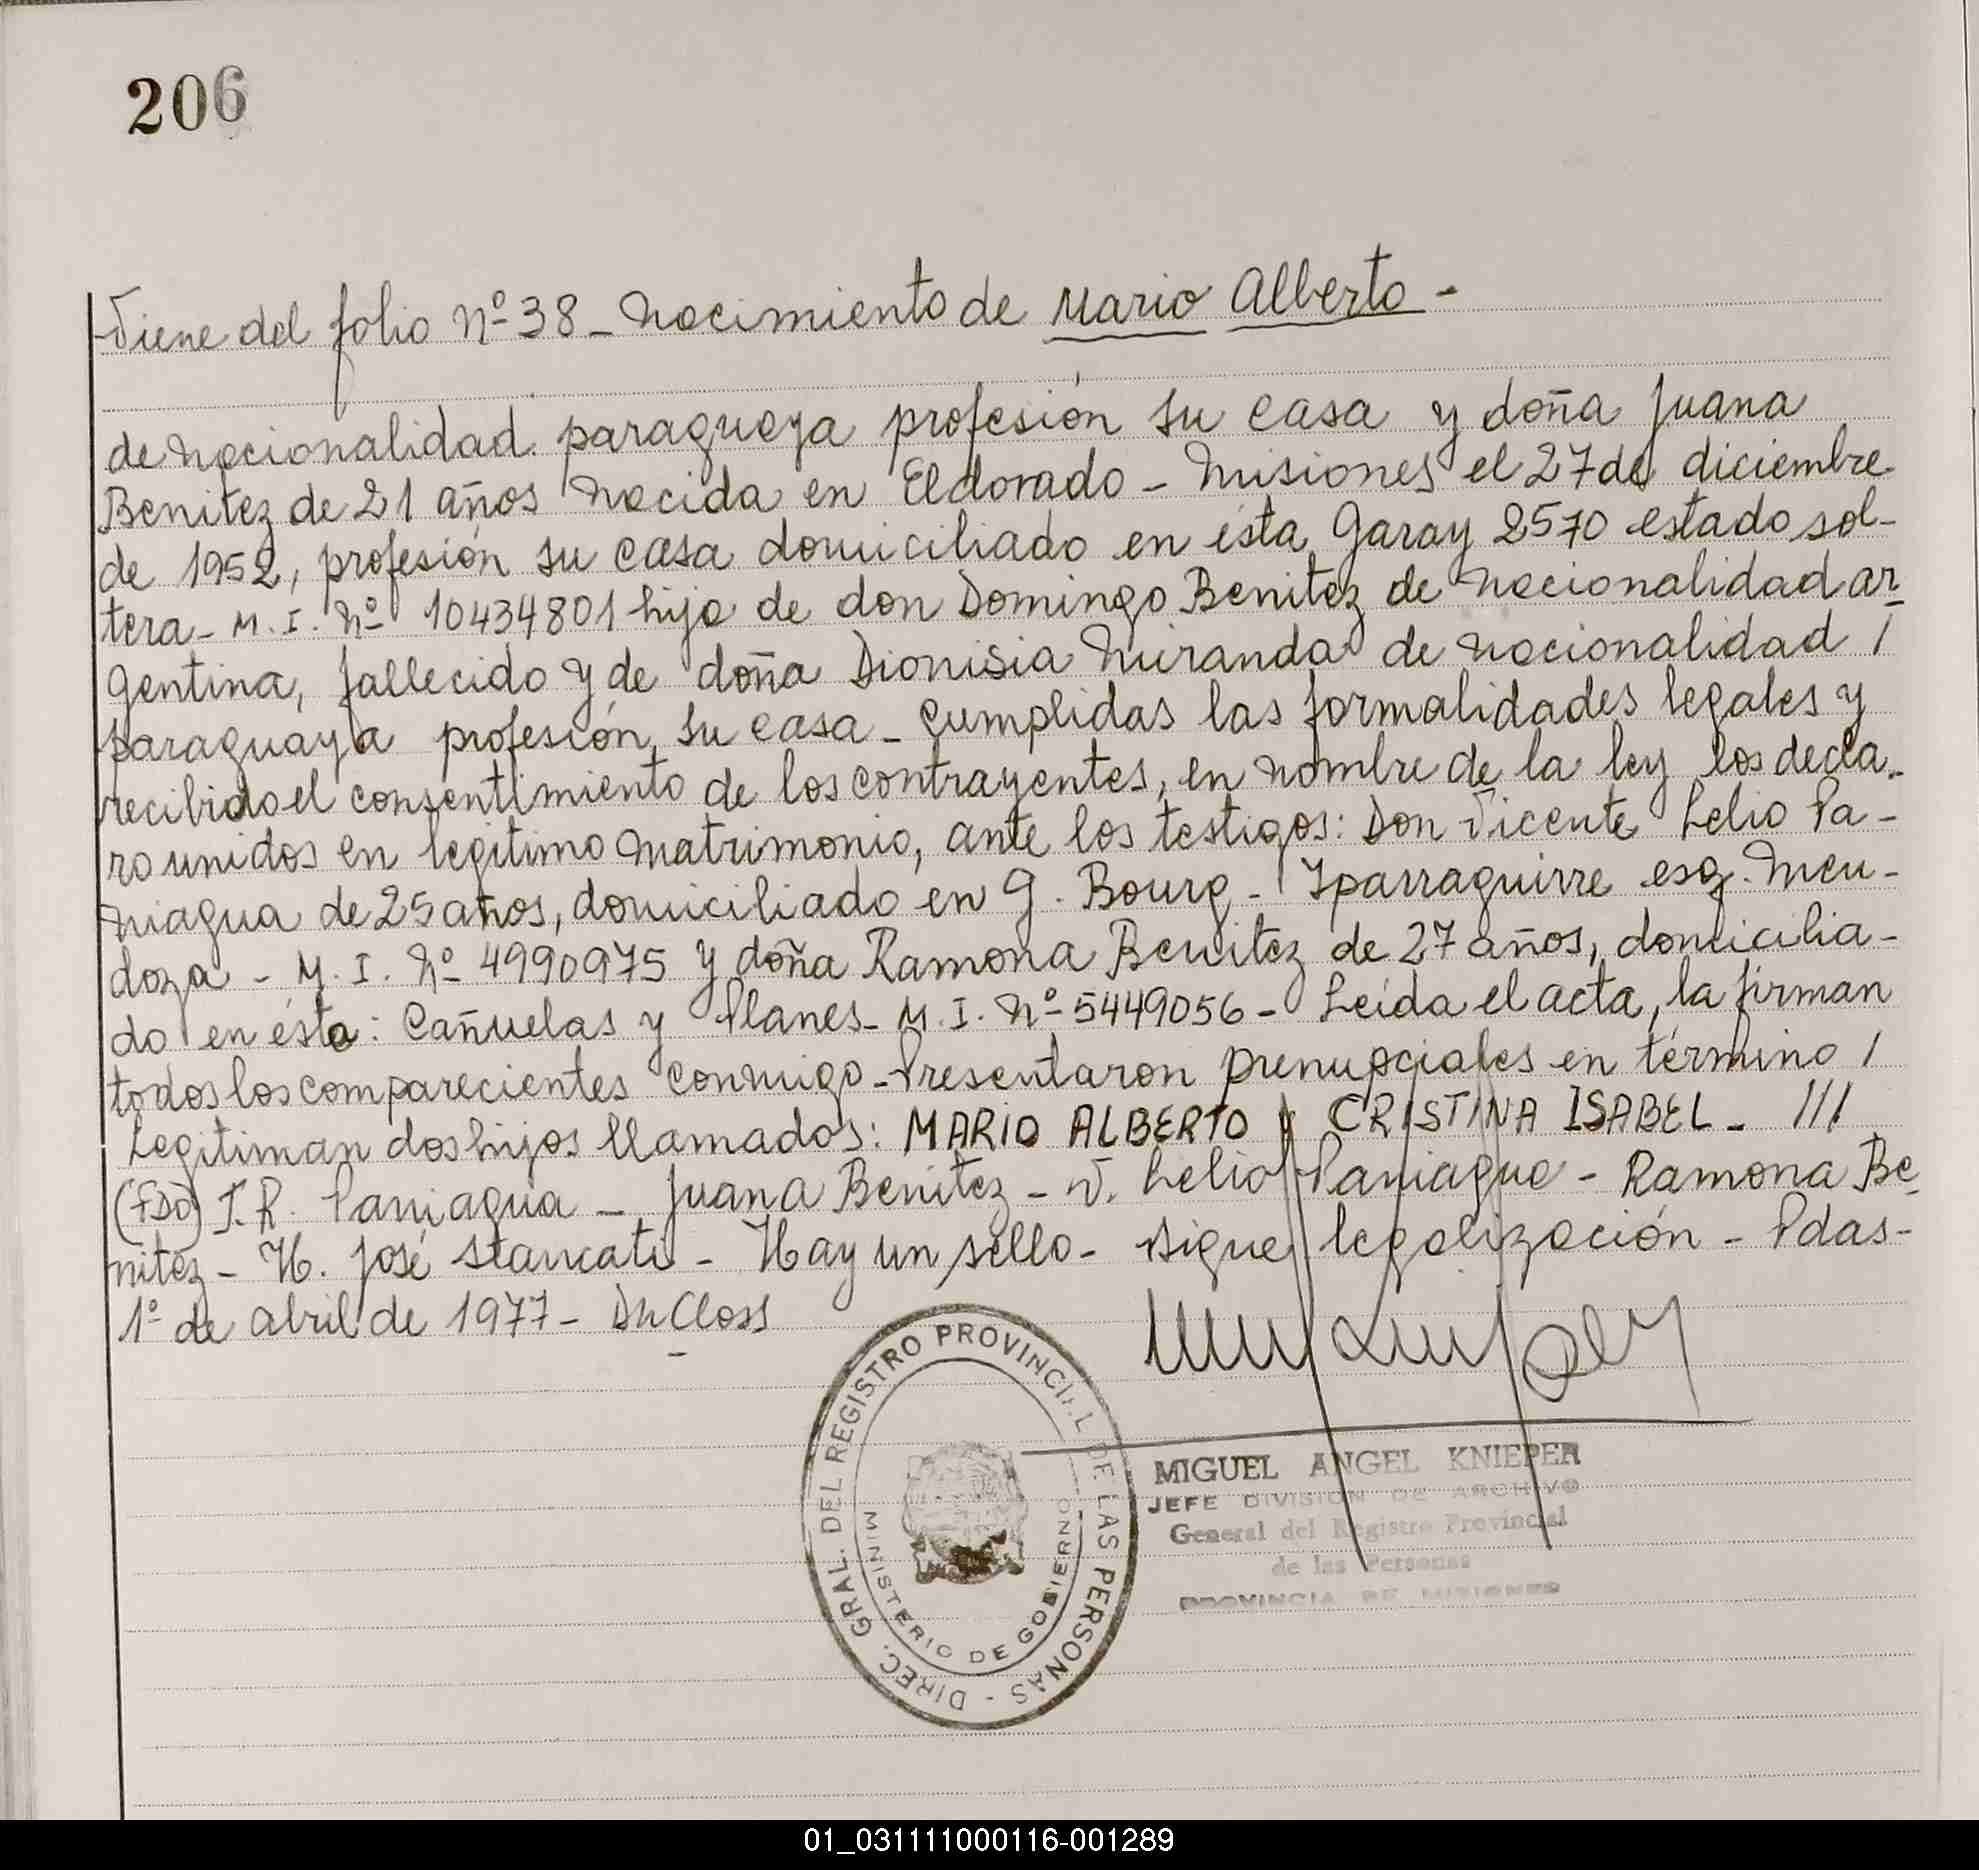 206
Viene del folio Nº 38 - Nacimiento de Mario Alberto -
de nacionalidad paraguaya profesión su casa y doña Juana
Benitez de 21 años nacida en Eldorado - Misiones el 27 de diciembre
de 1952, profesión su casa domiciliado en ésta Garay 2570 estado sol-
tera - M. I. Nº 10434801 hija de don Domingo Benitez de nacionalidad ar-
gentina, fallecido y de doña Dionisia Miranda de nacionalidad /
paraguaya profesión su casa - Cumplidas las formalidades legales y
recibido el consentimiento de los contrayentes, en nombre de la ley los decla-
ro unidos en legitimo matrimonio, ante los testigos: Don Vicente Lelio Pa-
niagua de 25 años, domiciliado en G. Bourg - Yparraguirre esq. Men-
doza - M. I. Nº 4990975 y doña Ramona Benitez de 27 años, domicilia-
do en ésta: Cañuelas y Planes - M. I. Nº 5449056 - Leída el acta, la firman
todos los comparecientes conmigo - Presentaron prenupciales en término /
Legitiman dos hijos llamados: MARIO ALBERTO y CRISTINA ISABEL - ///
(FDO) T. R. Paniagua - Juana Benitez - V. Lelio Paniagua - Ramona Be-
nitez - H. José Stancati - Hay un sello - Sigue legalización - Pdas -
1º de abril de 1977 - DuCloss
DIREC. GRAL. DEL REGISTRO PROVINCIAL DE LAS PERSONAS -
MINISTERIO DE GOBIERNO
MIGUEL ANGEL KNIEPER
JEFE DIVISION DE ARCHIVO
General del Registro Provincial
de las Personas
PROVINCIA DE MISIONES
01_031111000116-001289